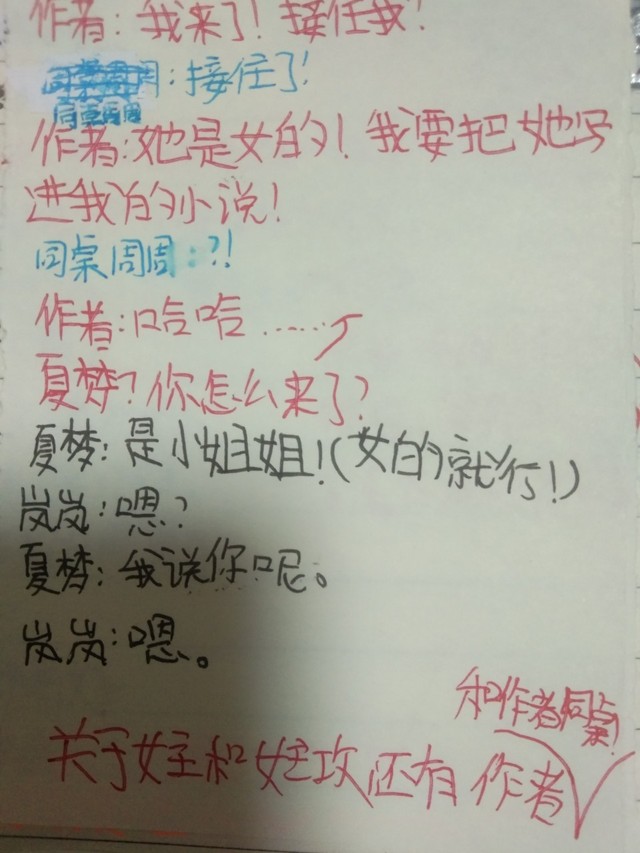 作者：我来了！接住我！
：接住了！
同桌周周
作者：她是女的！我要把她写
进我的小说！
同桌周周：?!
作者：哈哈……
夏梦？你怎么来了？
夏梦：是小姐姐！（女的就行！）
岚岚：嗯？
夏梦：我说你呢。
岚岚：嗯。
和作者同桌
关于女主和女主攻还有作者